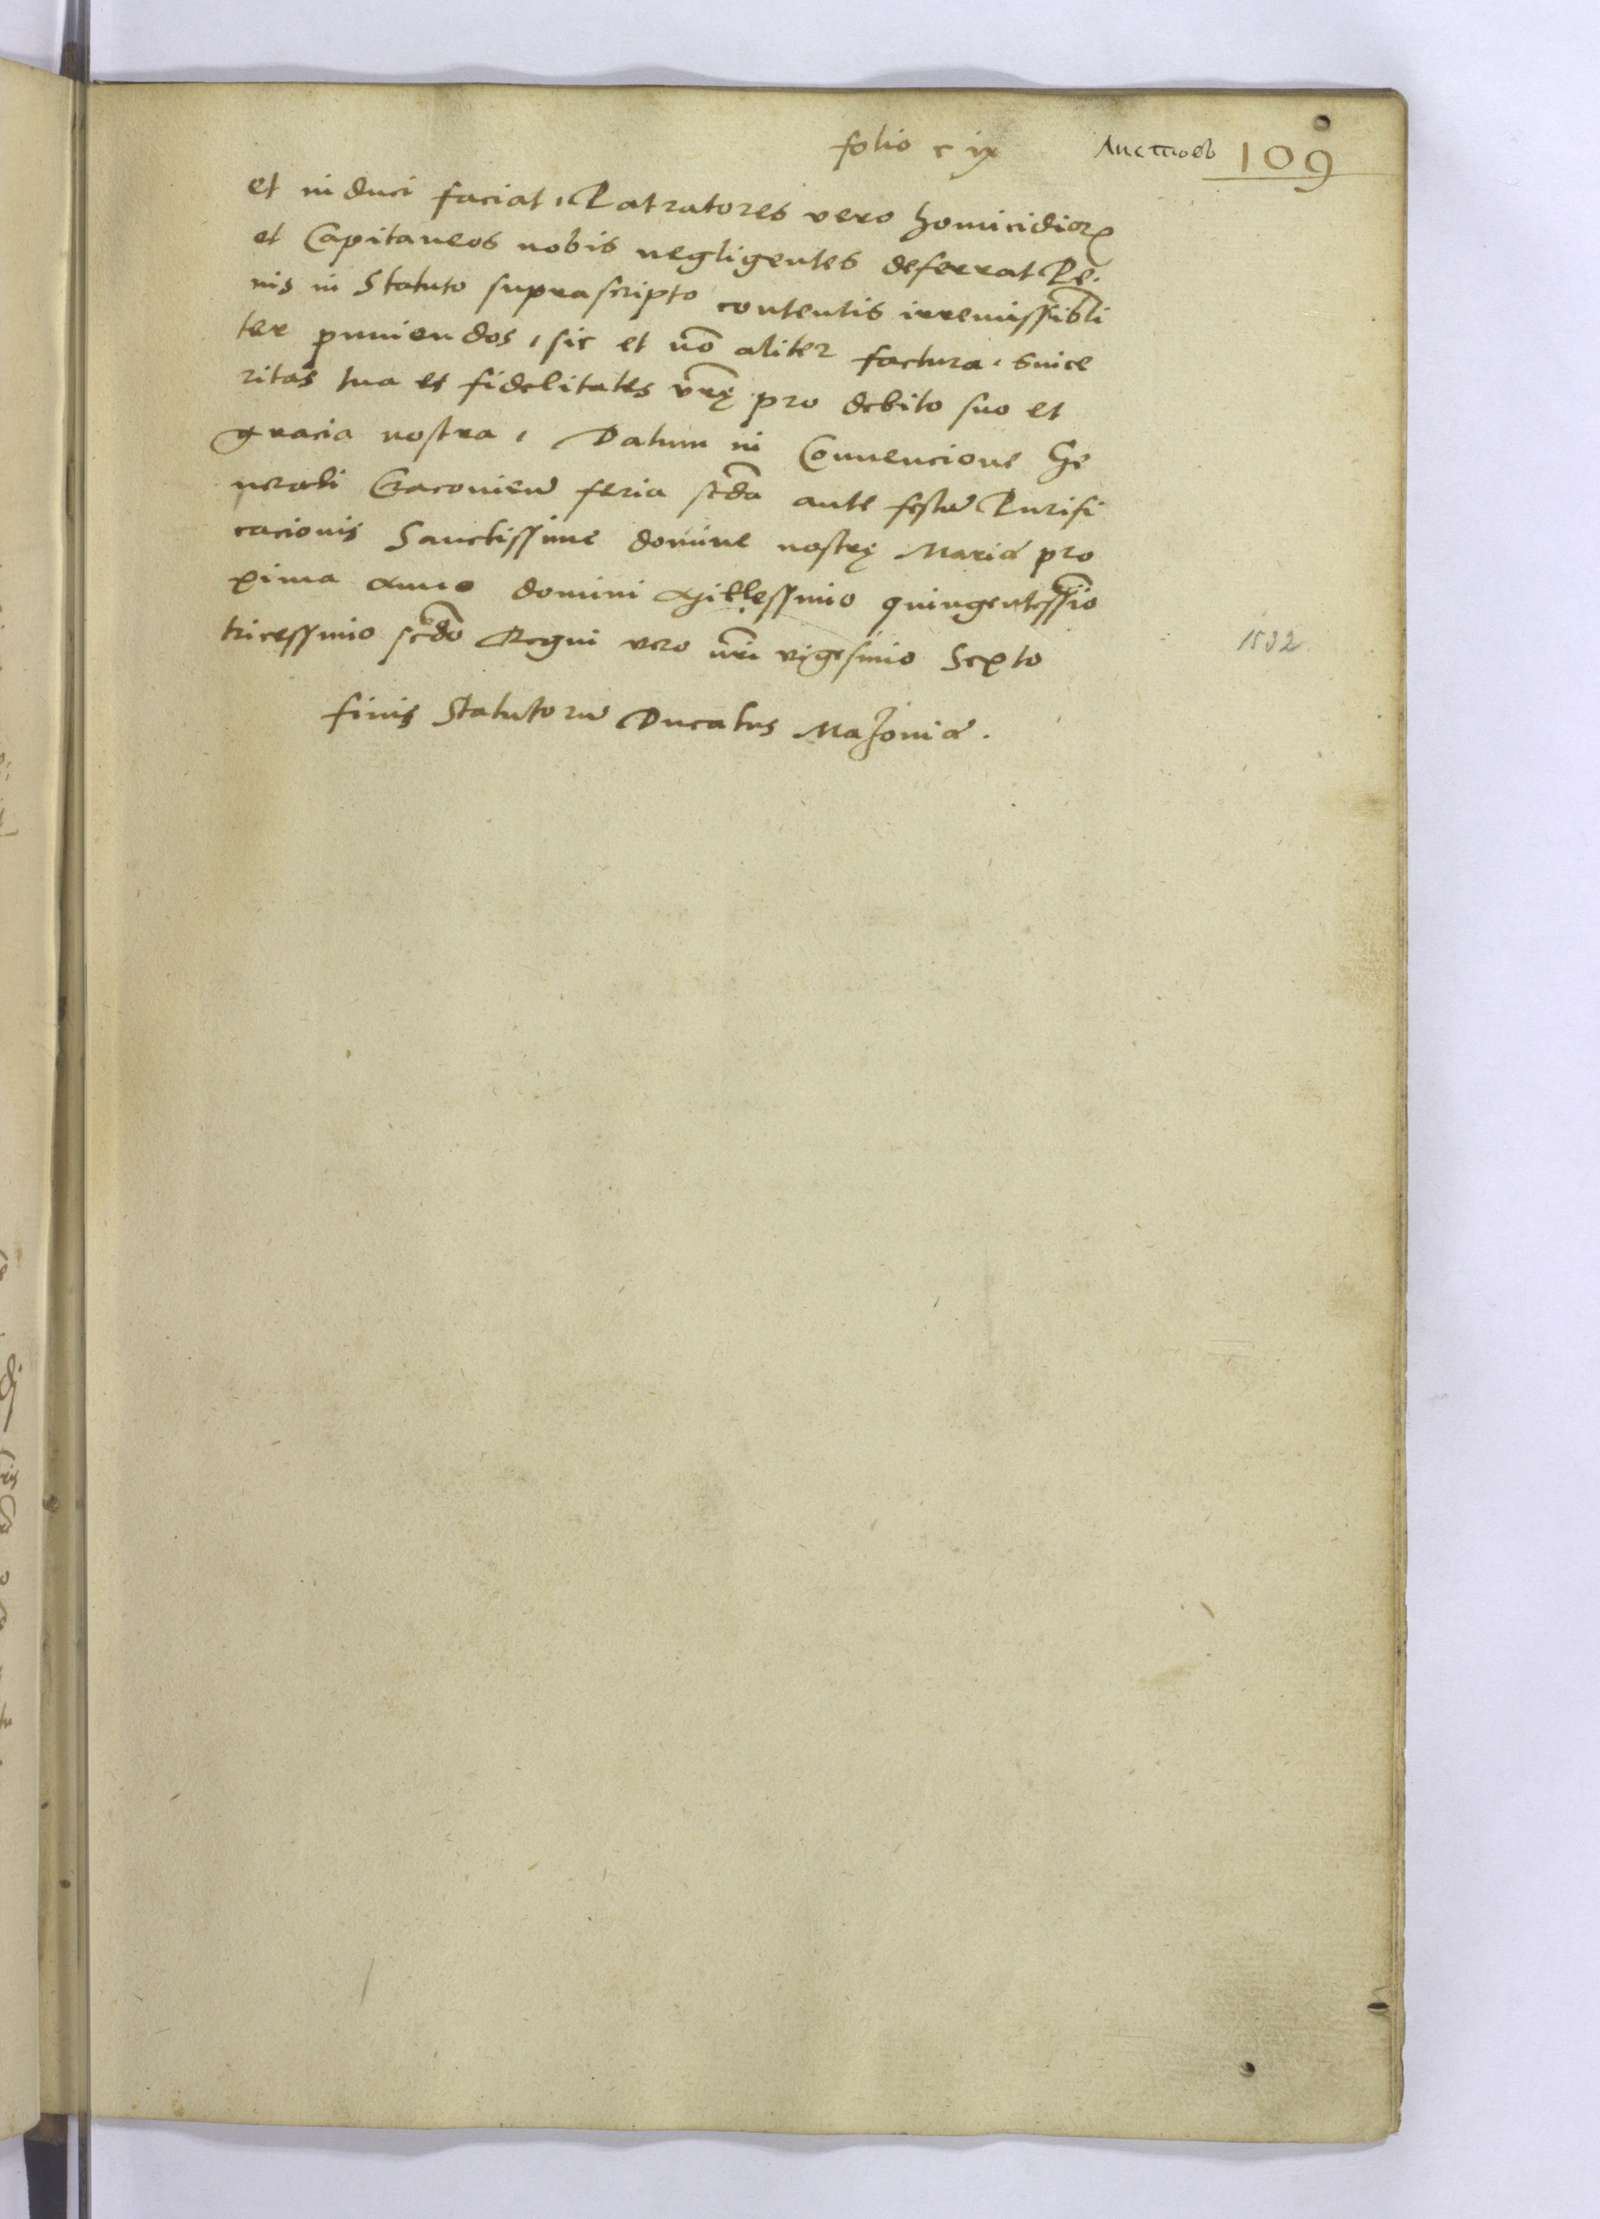 folio c ix
Листовъ 109
et induci faciat, Patratores vero homicidiorꝝ
et Capitaneos nobis negligentes deferrat Pe.
nis in Statuto suprascripto contentis irremissibłi
ter puniendos, sic et nō aliter factura. Since
ritas tua et fidelitates vrę pro debito suo et
gracia nostra, Datum in Convencione Ge
nerali Cracoviēn feria scdā ante festū Purifi
cacionis Sanctissime domine nostrę Mariæ pro
xima Anno domini Millessimo quingentessīo
tricessimo scdō Regni vero nrī vigesimo Sexto
1532
finis Statutorū Ducatus Mazoviæ.